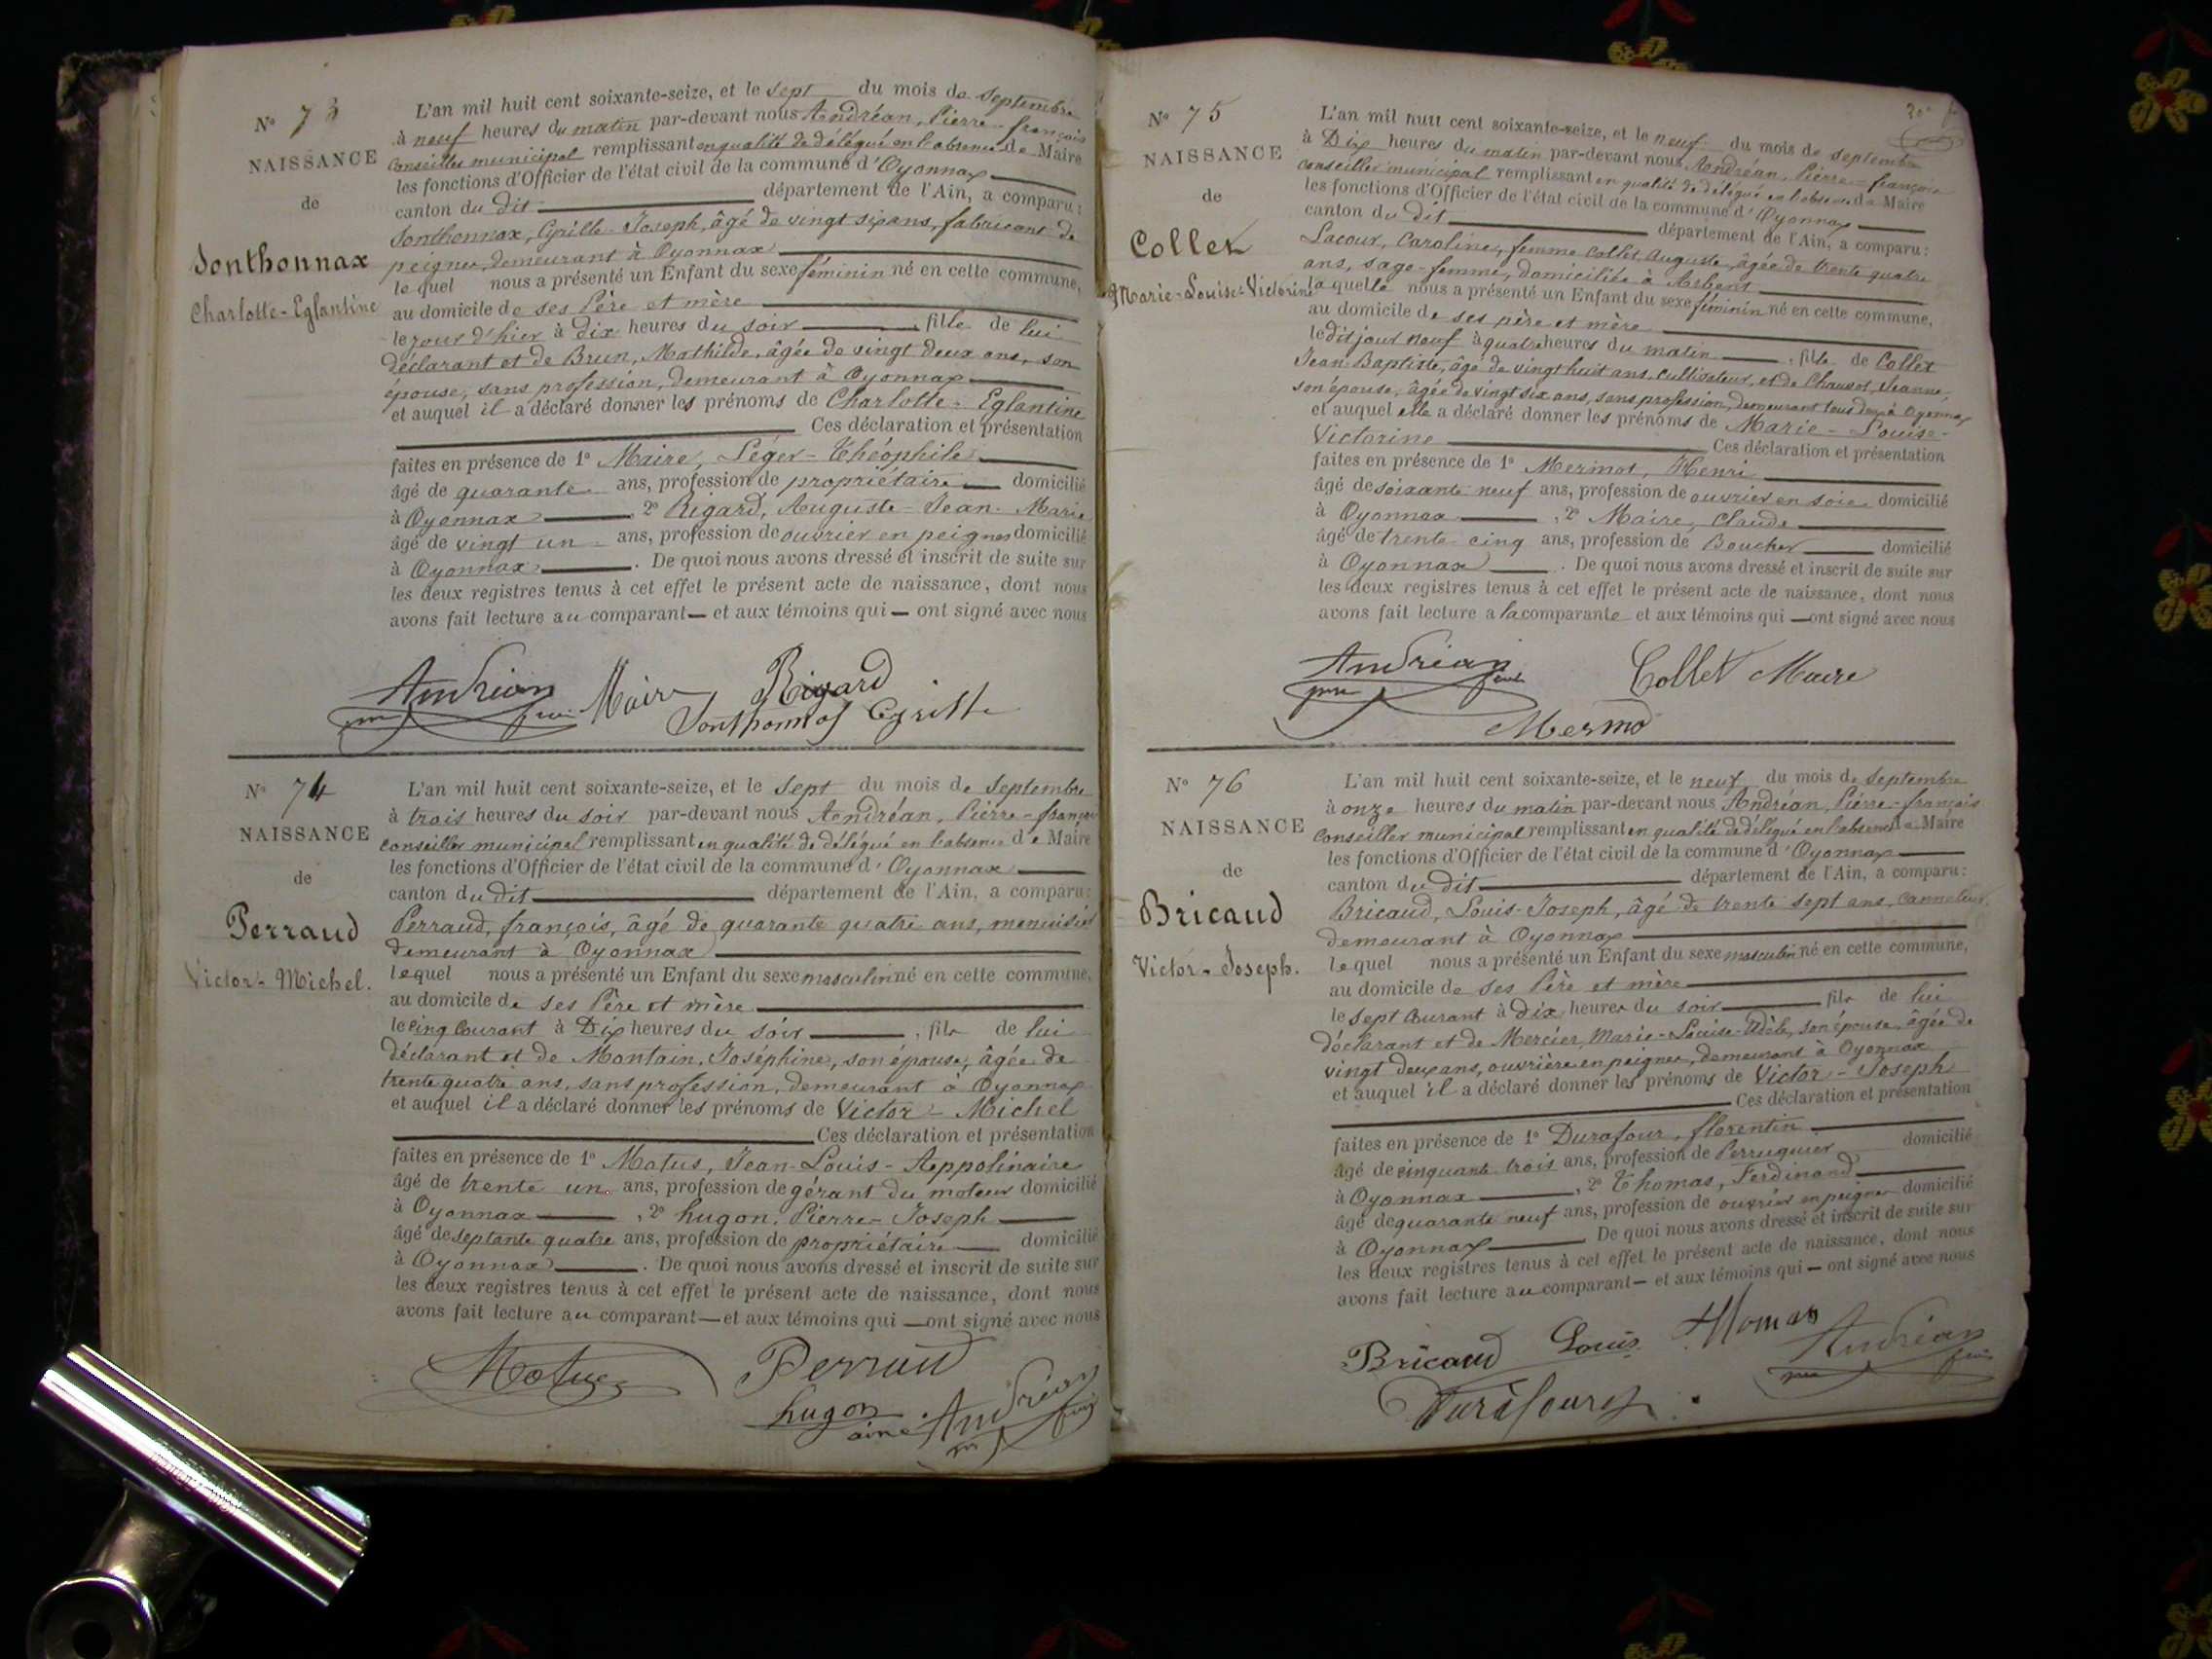 N° 73
NAISSANCE
de
Sonthonnax
Charlotte-Eglantine
L'an mil huit cent soixante-seize, et le sept du mois de septembre
à neuf heures du matin par-devant nous Andréan, Pierre-françois
Conseiller municipal remplissant en qualité de délégué en l'absence de Maire
les fonctions d'Officier de l'état civil de la commune d'Oyonnax
canton du dit département de l'Ain, a comparu:
Sonthonnax, Cyrille-Joseph, âgé de vingt six ans, fabricant de
peignes, demeurant à Oyonnax
lequel nous a présenté un Enfant du sexe féminin né en cette commune,
au domicile de ses Père et mère
le jour d'hier à dix heures du soir, fille de lui
déclarant et de Brun, Mathilde, âgée de vingt deux ans, son
épouse, sans profession, demeurant à Oyonnax
et auquel il a déclaré donner les prénoms de Charlotte-Eglantine
Ces déclaration et présentation
faites en présence de 1° Maire, Léger-Théophile
âgé de quarante ans, profession de propriétaire domicilié
à Oyonnax, 2° Rigard, Auguste-Jean-Marie
âgé de vingt un ans, profession de ouvrier en peignes domicilié
à Oyonnax. De quoi nous avons dressé et inscrit de suite sur
les deux registres tenus à cet effet le présent acte de naissance, dont nous
avons fait lecture au comparant et aux témoins qui ont signé avec nous
Andréan Maire Rigard
Sonthonnax Cyrille
N° 74
NAISSANCE
de
Perraud
Victor-Michel.
L'an mil huit cent soixante-seize, et le sept du mois de septembre
à trois heures du soir par-devant nous Andréan, Pierre-françois
conseiller municipal remplissant en qualité de délégué en l'absence de Maire
les fonctions d'Officier de l'état civil de la commune d'Oyonnax
canton du dit département de l'Ain, a comparu:
Perraud, françois, âgé de quarante quatre ans, menuisier
demeurant à Oyonnax
lequel nous a présenté un Enfant du sexe masculin né en cette commune,
au domicile de ses Père et mère
le cinq courant à Dix heures du soir, fils de lui
déclarant et de Montain, Joséphine, son épouse, âgée de
trente quatre ans, sans profession, demeurant à Oyonnax
et auquel il a déclaré donner les prénoms de Victor-Michel
Ces déclaration et présentation
faites en présence de 1° Matus, Jean-Louis-Appolinaire
âgé de trente un ans, profession de gérant du moteur domicilié
à Oyonnax, 2° hugon, Pierre-Joseph
âgé de septante quatre ans, profession de propriétaire domicilié
à Oyonnax. De quoi nous avons dressé et inscrit de suite sur
les deux registres tenus à cet effet le présent acte de naissance, dont nous
avons fait lecture au comparant et aux témoins qui ont signé avec nous
Matus Perraud
hugon ainé Andréan
N° 75
NAISSANCE
de
Collet
Marie-Louise-Victorine
L'an mil huit cent soixante-seize, et le neuf du mois de septembre
à Dix heures du matin par-devant nous Andréan, Pierre-françois
conseiller municipal remplissant en qualité de délégué en l'absence de Maire
les fonctions d'Officier de l'état civil de la commune d'Oyonnax
canton du dit département de l'Ain, a comparu:
Lacour, Caroline, femme Collet, Auguste, âgée de trente quatre
ans, sage-femme, domiciliée à Arbent
laquelle nous a présenté un Enfant du sexe féminin né en cette commune,
au domicile de ses père et mère
le dit jour neuf à quatre heures du matin, fille de Collet
Jean-Baptiste, âgé de vingt huit ans, cultivateur, et de Jeanne,
son épouse, âgée de vingt six ans, sans profession, demeurant tous deux à Oyonnax
et auquel elle a déclaré donner les prénoms de Marie-Louise-
Victorine Ces déclaration et présentation
faites en présence de 1° Mermot, Henri
âgé de soixante neuf ans, profession de ouvrier en soie domicilié
à Oyonnax, 2° Maire, Claude
âgé de trente cinq ans, profession de Boucher domicilié
à Oyonnax. De quoi nous avons dressé et inscrit de suite sur
les deux registres tenus à cet effet le présent acte de naissance, dont nous
avons fait lecture a la comparante et aux témoins qui ont signé avec nous
Andréan Collet Maire
Mermo
N° 76
NAISSANCE
de
Bricaud
Victor-Joseph.
L'an mil huit cent soixante-seize, et le neuf du mois de septembre
à onze heures du matin par-devant nous Andréan, Pierre-françois
Conseiller municipal remplissant en qualité de délégué en l'absence de Maire
les fonctions d'Officier de l'état civil de la commune d'Oyonnax
canton du dit département de l'Ain, a comparu:
Bricaud, Louis-Joseph, âgé de trente sept ans, canneleur,
demeurant à Oyonnax
lequel nous a présenté un Enfant du sexe masculin né en cette commune,
au domicile de ses Père et mère
le sept courant à dix heures du soir fils de lui
déclarant et de Mercier, Marie-Louise-Adèle, son épouse, âgée de
vingt deux ans, ouvrière en peignes, demeurant à Oyonnax
et auquel il a déclaré donner les prénoms de Victor-Joseph
Ces déclaration et présentation
faites en présence de 1° Durafour, florentin
âgé de cinquante trois ans, profession de Perruquier domicilié
à Oyonnax, 2° Thomas, Ferdinand
âgé de quarante neuf ans, profession de ouvrier en peignes domicilié
à Oyonnax De quoi nous avons dressé et inscrit de suite sur
les deux registres tenus à cet effet le présent acte de naissance, dont nous
avons fait lecture au comparant et aux témoins qui ont signé avec nous
Bricaud Louis Thomas Andréan
Durafourg